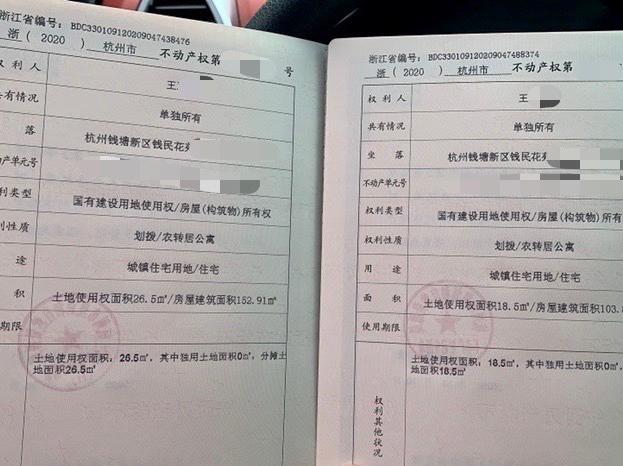 浙江省编号：BDC330109120209047438476
浙（2020）杭州市 不动产权第 号
权利人 王
共有情况 单独所有
落 杭州钱塘新区钱民花苑
动产单元号
利类型 国有建设用地使用权/房屋(构筑物)所有权
利性质 划拨/农转居公寓
途 城镇住宅用地/住宅
积 土地使用权面积26.5㎡/房屋建筑面积152.91㎡
用期限
土地使用权面积：26.5㎡，其中独用土地面积0㎡，分摊土
地面积26.5㎡
浙江省编号：BDC330109120209047488374
浙（2020）杭州市 不动产权第
权利人 王
共有情况 单独所有
坐落 杭州钱塘新区钱民花
不动产单元号
权利类型 国有建设用地使用权/房屋(构筑物)所有
权利性质 划拨/农转居公寓
用途 城镇住宅用地/住宅
面积 土地使用权面积18.5㎡/房屋建筑面积103.8
使用期限
土地使用权面积：18.5㎡，其中独用土地面积0㎡，
地面积18.5㎡
权利其他状况